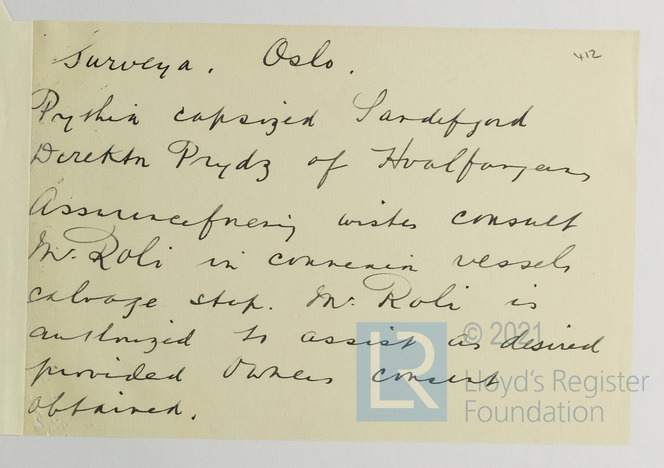 Surveya. Oslo.
412
Pythia capsized Sandefjord
Direktn Prydz of Hvalfangeres
Assuranceforening wishes consult
Mr. Roli in connexin vessels
salvage step. Mr. Roli is
authorized to assist as desired
provided owners consent
obtained.
© 2021
LR
Lloyd's Register
Foundation